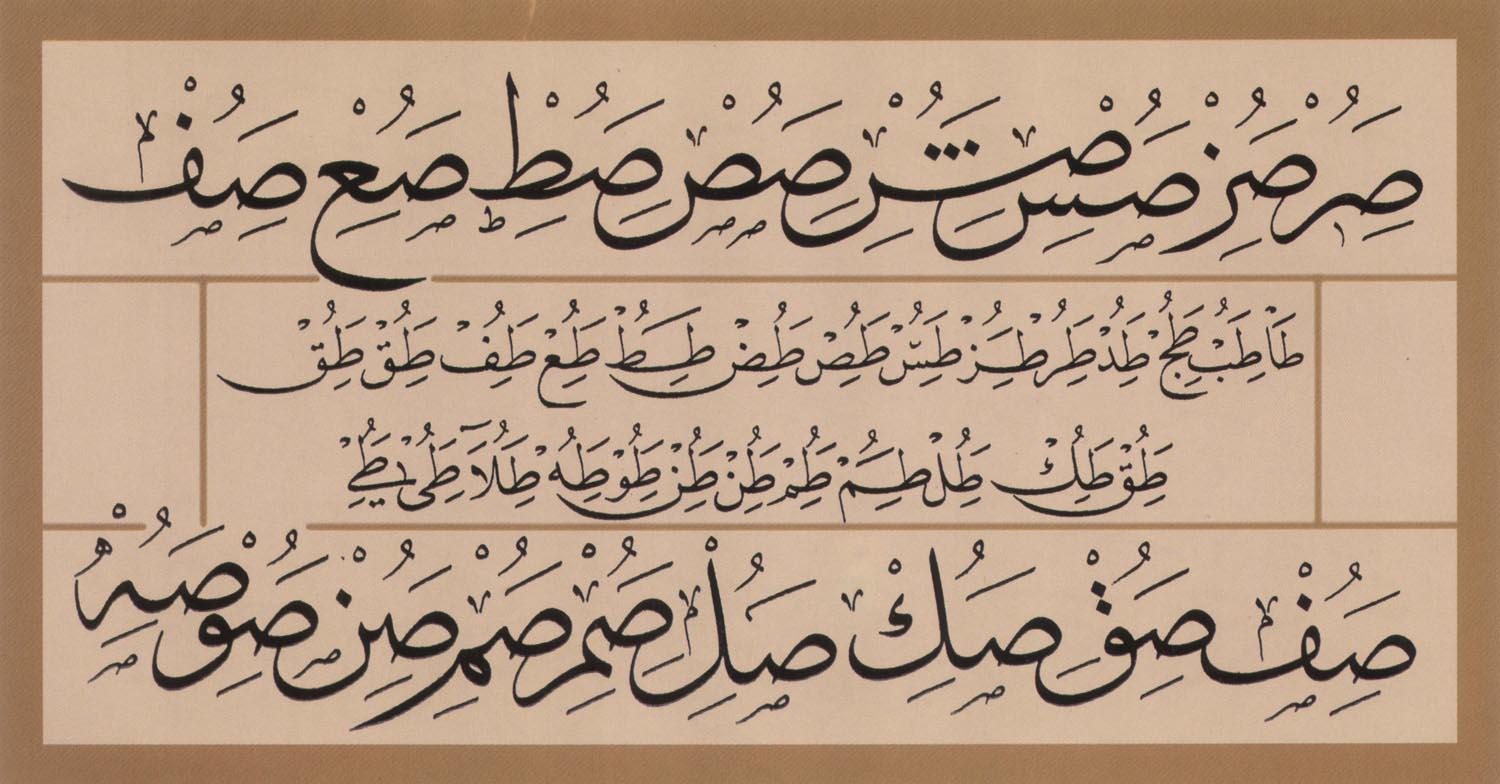 صَُِرْ صَُِزْ صَُِسْ صَُِشْ صَُِصْ صَُِطْ صَُِعْ صَُِفْ
طَُِاْ طَُِبْ طَُِجْ طَُِدْ طَُِرْ طَُِزْ طَُِسْ طَُِصْ طَُِضْ طَُِطْ طَُِعْ طَُِفْ طَُِقْ طَُِقْ
طَُِقْ طَُِكْ طَُِلْ طَُِمْ طَُِمْ طَُِنْ طَُِنْ طَُِوْ طَُِهْ طَُِلَا طَُِىْ طَُِيْ
صَُِفْ صَُِقْ صَُِكْ صَُِلْ صَُِمْ صَُِمْ صَُِنْ صَُِوْ صَُِهْ